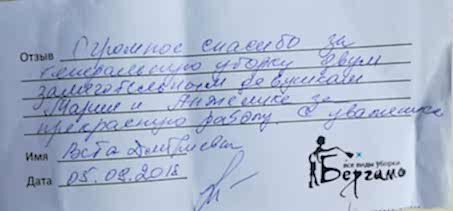 Отзыв Огромное спасибо за
генеральную уборку двум
замечательным девушкам
Марии и Анжелике за
прекрасную работу. С уважением
Имя Роста Дмитриевич
Дата 05.09.2018
все виды уборки
Бергамо